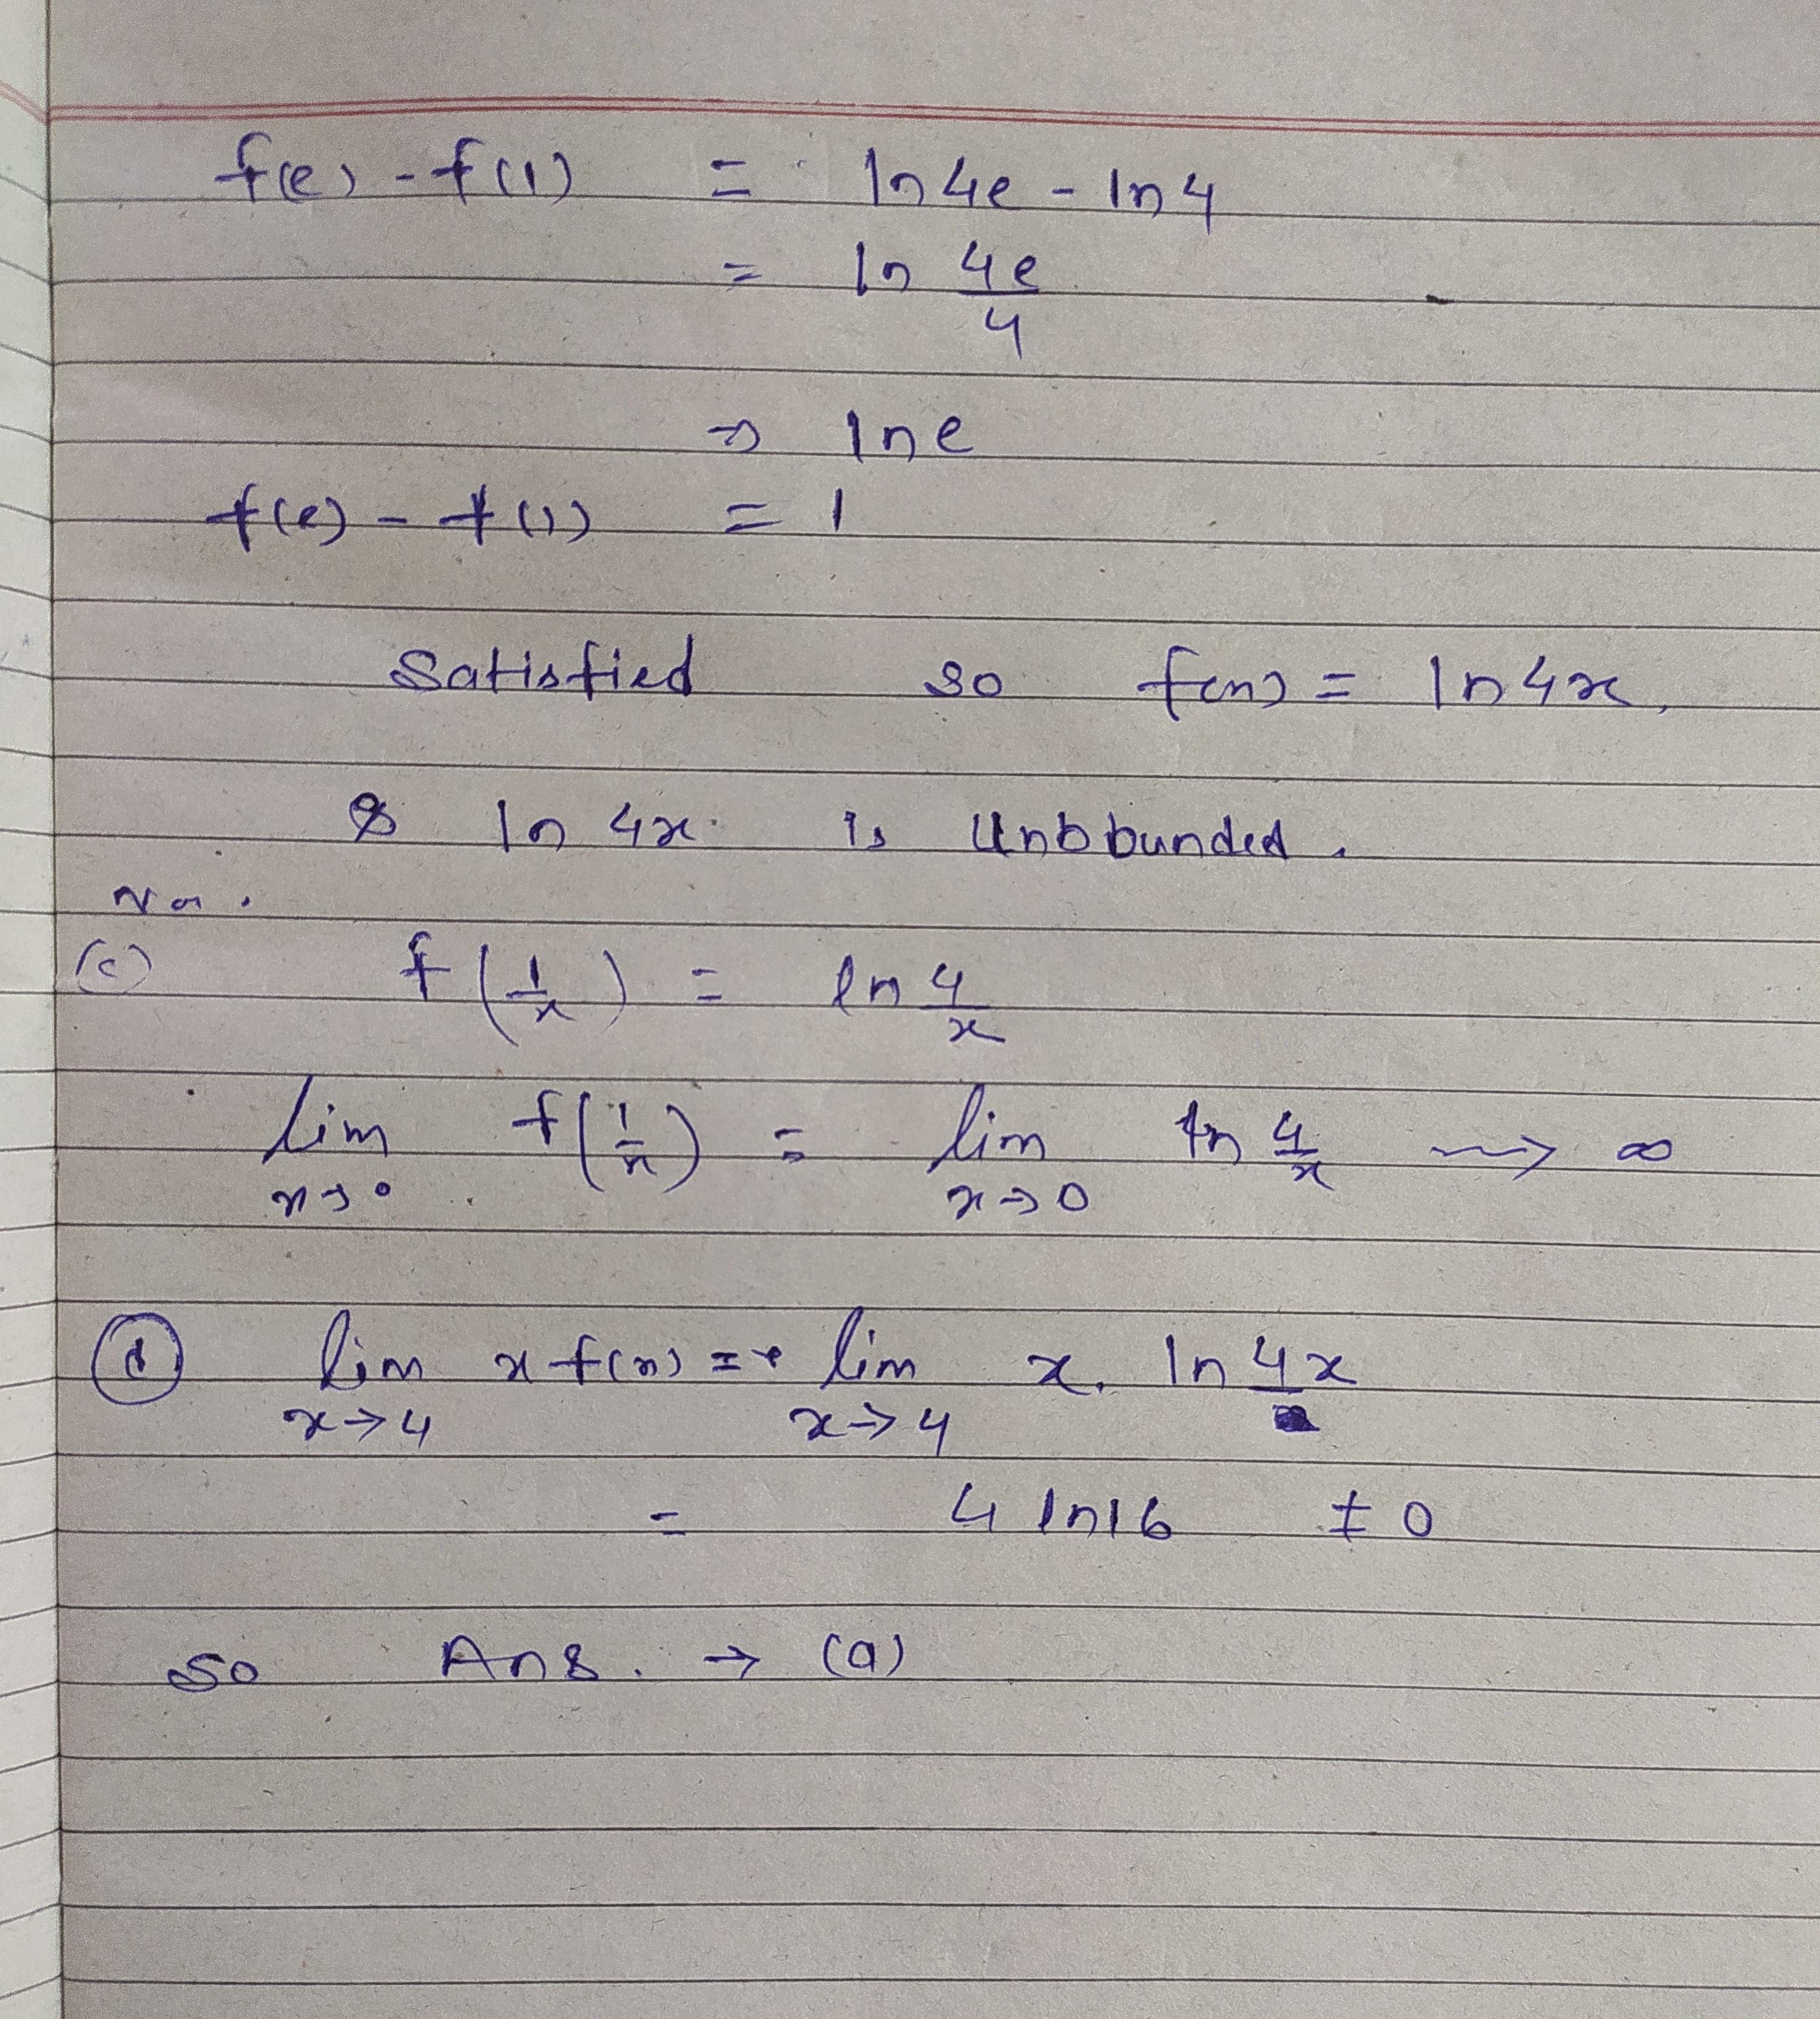 f(e) - f(1) = ln 4e - ln 4
= ln 4e/4
⇒ ln e
f(e) - f(1) = 1
Satisfied so f(n) = ln 4x,
& ln 4x is Unbbunded.
(c) f(1/x) = ln 4/x
lim x→0 f(1/n) = lim x→0 ln 4/x ⟿ ∞
(d) lim x→4 x f(n) = lim x→4 x. ln 4x
= 4 ln 16 ≠ 0
so Ans. → (a)